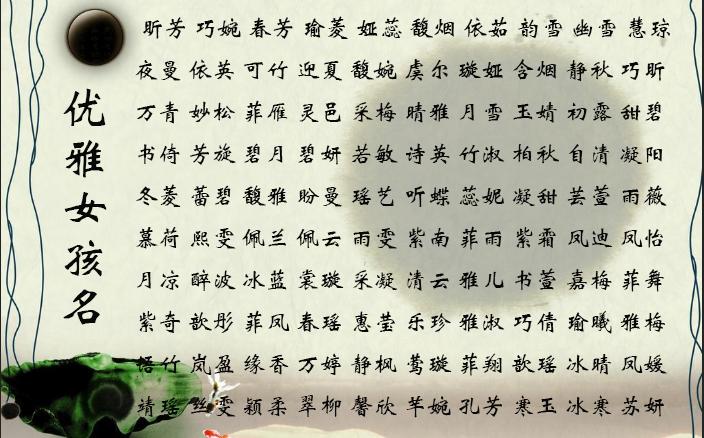 优雅女孩名
昕芳 巧婉 春芳 瑜菱 娅蕊 馥烟 依茹 韵雪 幽雪 慧琼
夜曼 依英 可竹 迎夏 馥婉 虞尔 璇娅 含烟 静秋 巧昕
万青 妙松 菲雁 灵邑 采梅 晴雅 月雪 玉婧 初露 甜碧
书倚 芳旋 碧月 碧妍 若敏 诗英 竹淑 柏秋 自清 凝阳
冬菱 蕾碧 馥雅 盼曼 瑶艺 听蝶 蕊妮 凝甜 芸萱 雨薇
慕荷 熙雯 佩兰 佩云 雨雯 紫南 菲雨 紫霜 凤迪 凤怡
月凉 醉波 冰蓝 裳璇 采凝 清云 雅儿 书萱 嘉梅 菲舞
紫奇 歆彤 菲凤 春瑶 惠莹 乐珍 雅淑 巧倩 瑜曦 雅梅
悟竹 岚盈 缘香 万婷 静枫 莺璇 菲翔 歆瑶 冰晴 凤媛
靖瑶 丝雯 颖柔 翠柳 馨欣 芊婉 孔芳 寒玉 冰寒 苏妍